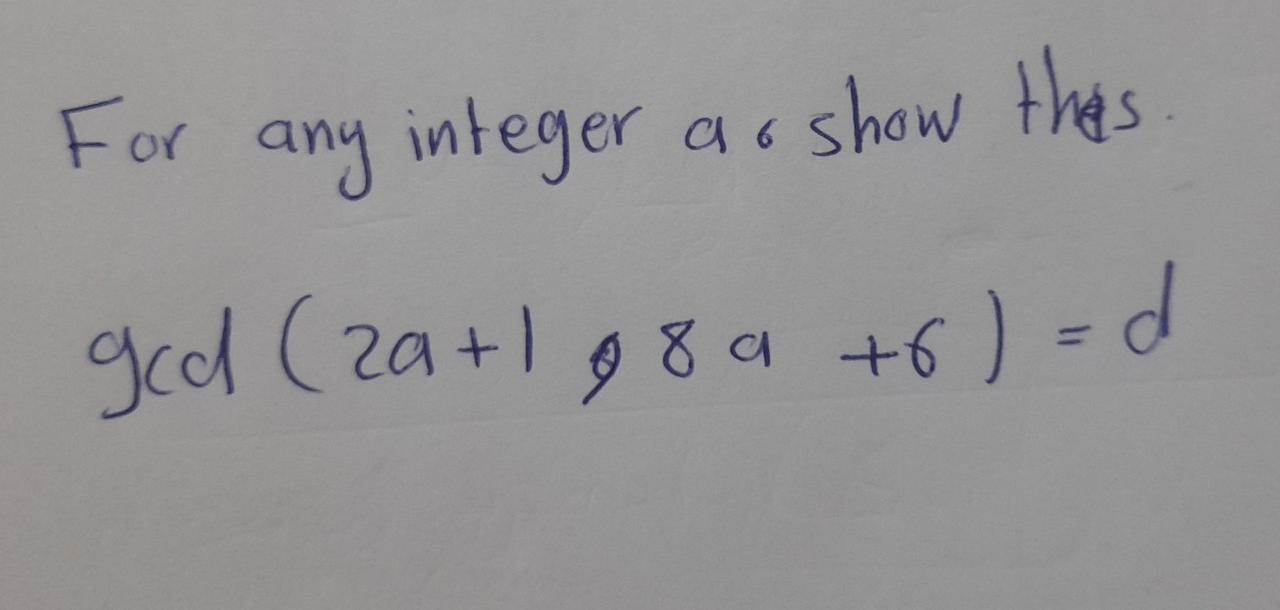 For any integer a, show this.
gcd (2a+1, 8a +6) = d